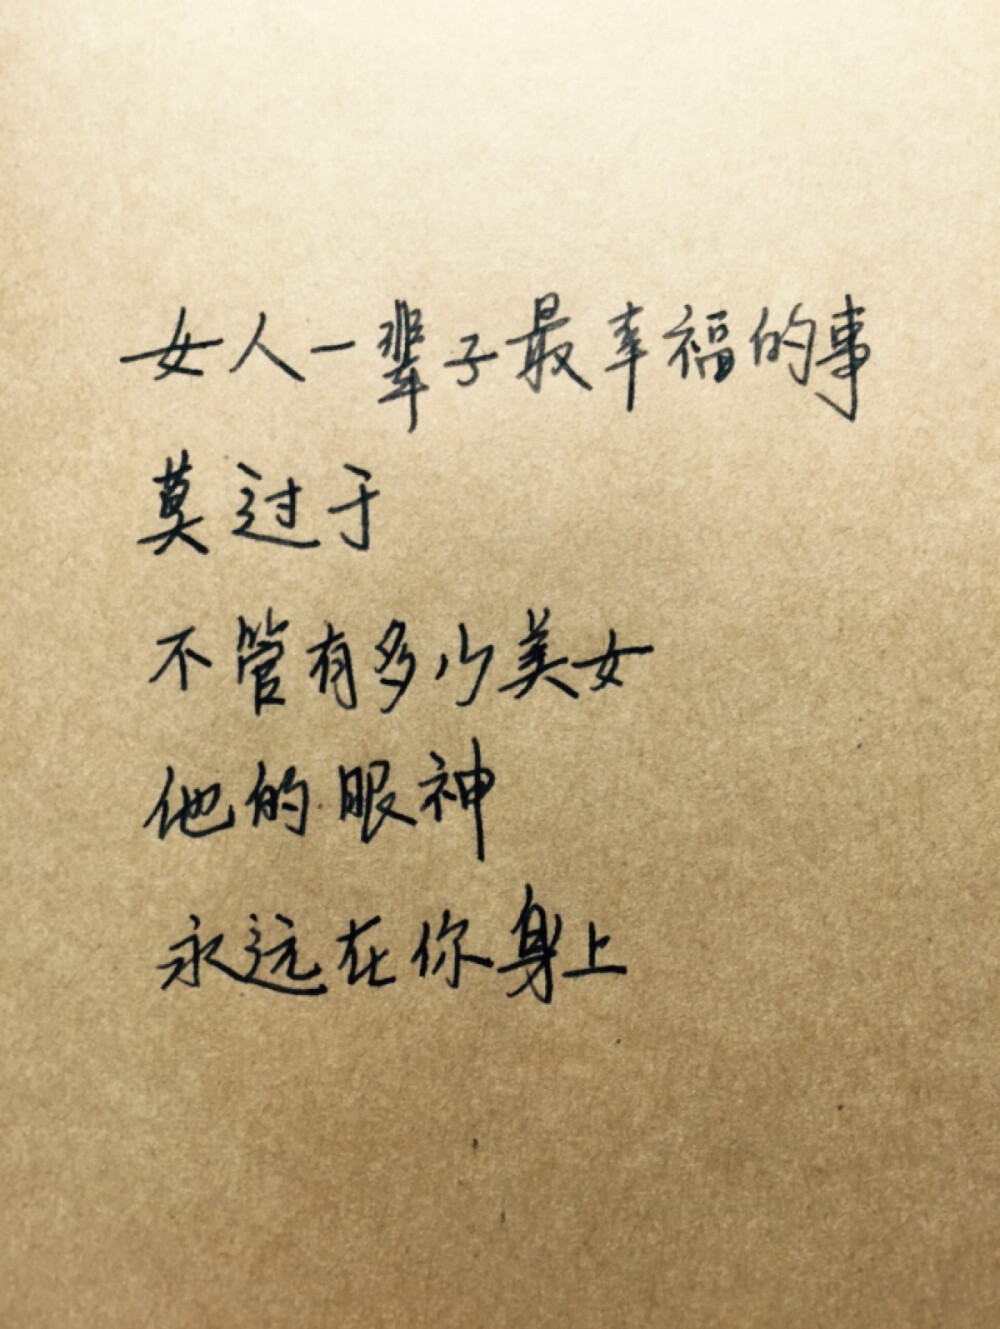 女人一辈子最幸福的事
莫过于
不管有多少美女
他的眼神
永远在你身上